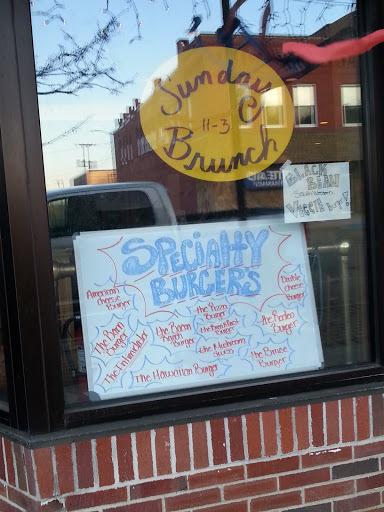 Sunday
@
11-3
Brunch
BLACK BEAN
SOUTHWESTERN
VEGGIE
SPECIALTY
BURGERS
American
cheese
Burger
Double
cheese
Burger
the Pizza
Burger
the Rodeo
Burger
the Bacon
Ranch
Burger
the Breakfast
Burger
The Bacon
Burger
the Mushroom
Swiss
the Bruise
Burger
The Intimidator
The Hawaiian Burger